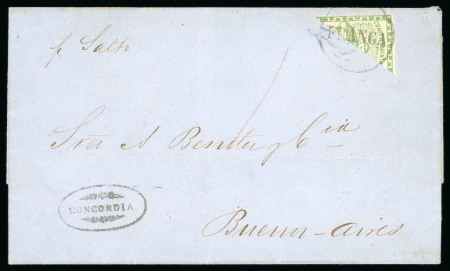 FRANCA
p Salto
Sres A Benites y Cia
CONCORDIA
Buenos-Aires